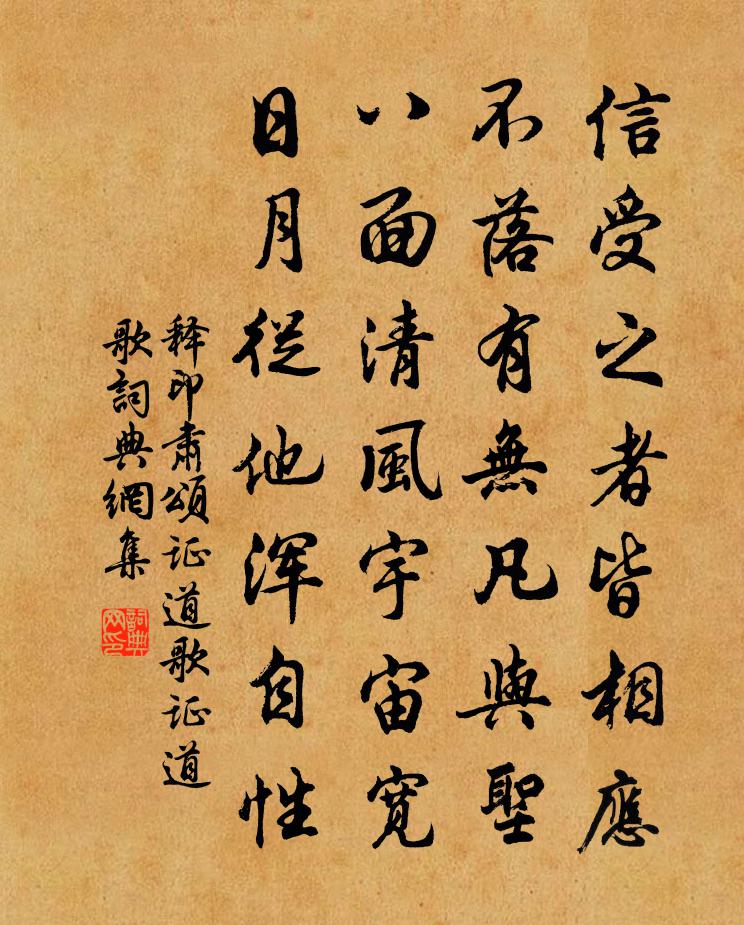 信受之者皆相應
不落有無凡與聖
八面清風宇宙寬
日月從他浑自性
释印肅頌证道歌证道
歌詞典網集
詞典网印